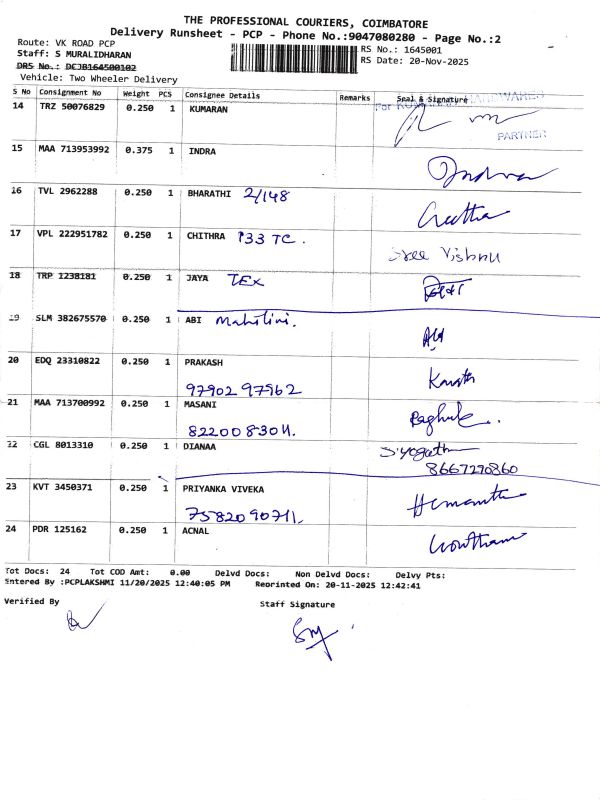 THE PROFESSIONAL COURIERS, COIMBATORE
Delivery Runsheet - PCP - Phone No.:9047080280 - Page No.:2
Route: VK ROAD PCP
RS No.: 1645001
Staff: S MURALIDHARAN
RS Date: 20-Nov-2025
DRS No.: DCJB164500102
Vehicle: Two Wheeler Delivery
S No Consignment No Weight PCS Consignee Details Remarks Seal & Signature
14 TRZ 50076829 0.250 1 KUMARAN
For HARDWARES
PARTNER
15 MAA 713953992 0.375 1 INDRA Indra
16 TVL 2962288 0.250 1 BHARATHI 2/148
17 VPL 222951782 0.250 1 CHITHRA 133 TC. Sree Vishnu
18 TRP 1238181 0.250 1 JAYA TEX
19 SLM 382675570 0.250 1 ABI
20 EDQ 23310822 0.250 1 PRAKASH
97902 97962
21 MAA 713700992 0.250 1 MASANI
8220083011.
22 CGL 8013310 0.250 1 DIANAA
8667290860
23 KVT 3450371 0.250 1 PRIYANKA VIVEKA Hemanth
7582090711.
24 PDR 125162 0.250 1 ACNAL Gowtham
Tot Docs: 24 Tot COD Amt: 0.00 Delvd Docs: Non Delvd Docs: Delvy Pts:
Entered By :PCPLAKSHMI 11/20/2025 12:40:05 PM Reprinted On: 20-11-2025 12:42:41
Verified By
Staff Signature